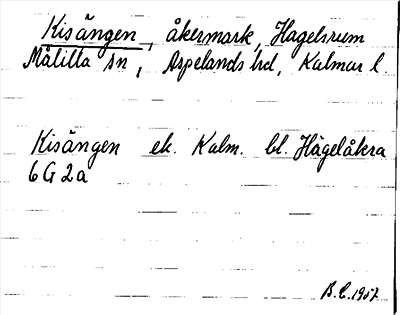 Kisängen, åkermark, Hagelsrum
Målilla sn, Aspelands hd, Kalmar l.
Kisängen ek. Kalm. bl. Hägelåkra
6 G 2 a
B.E. 1957